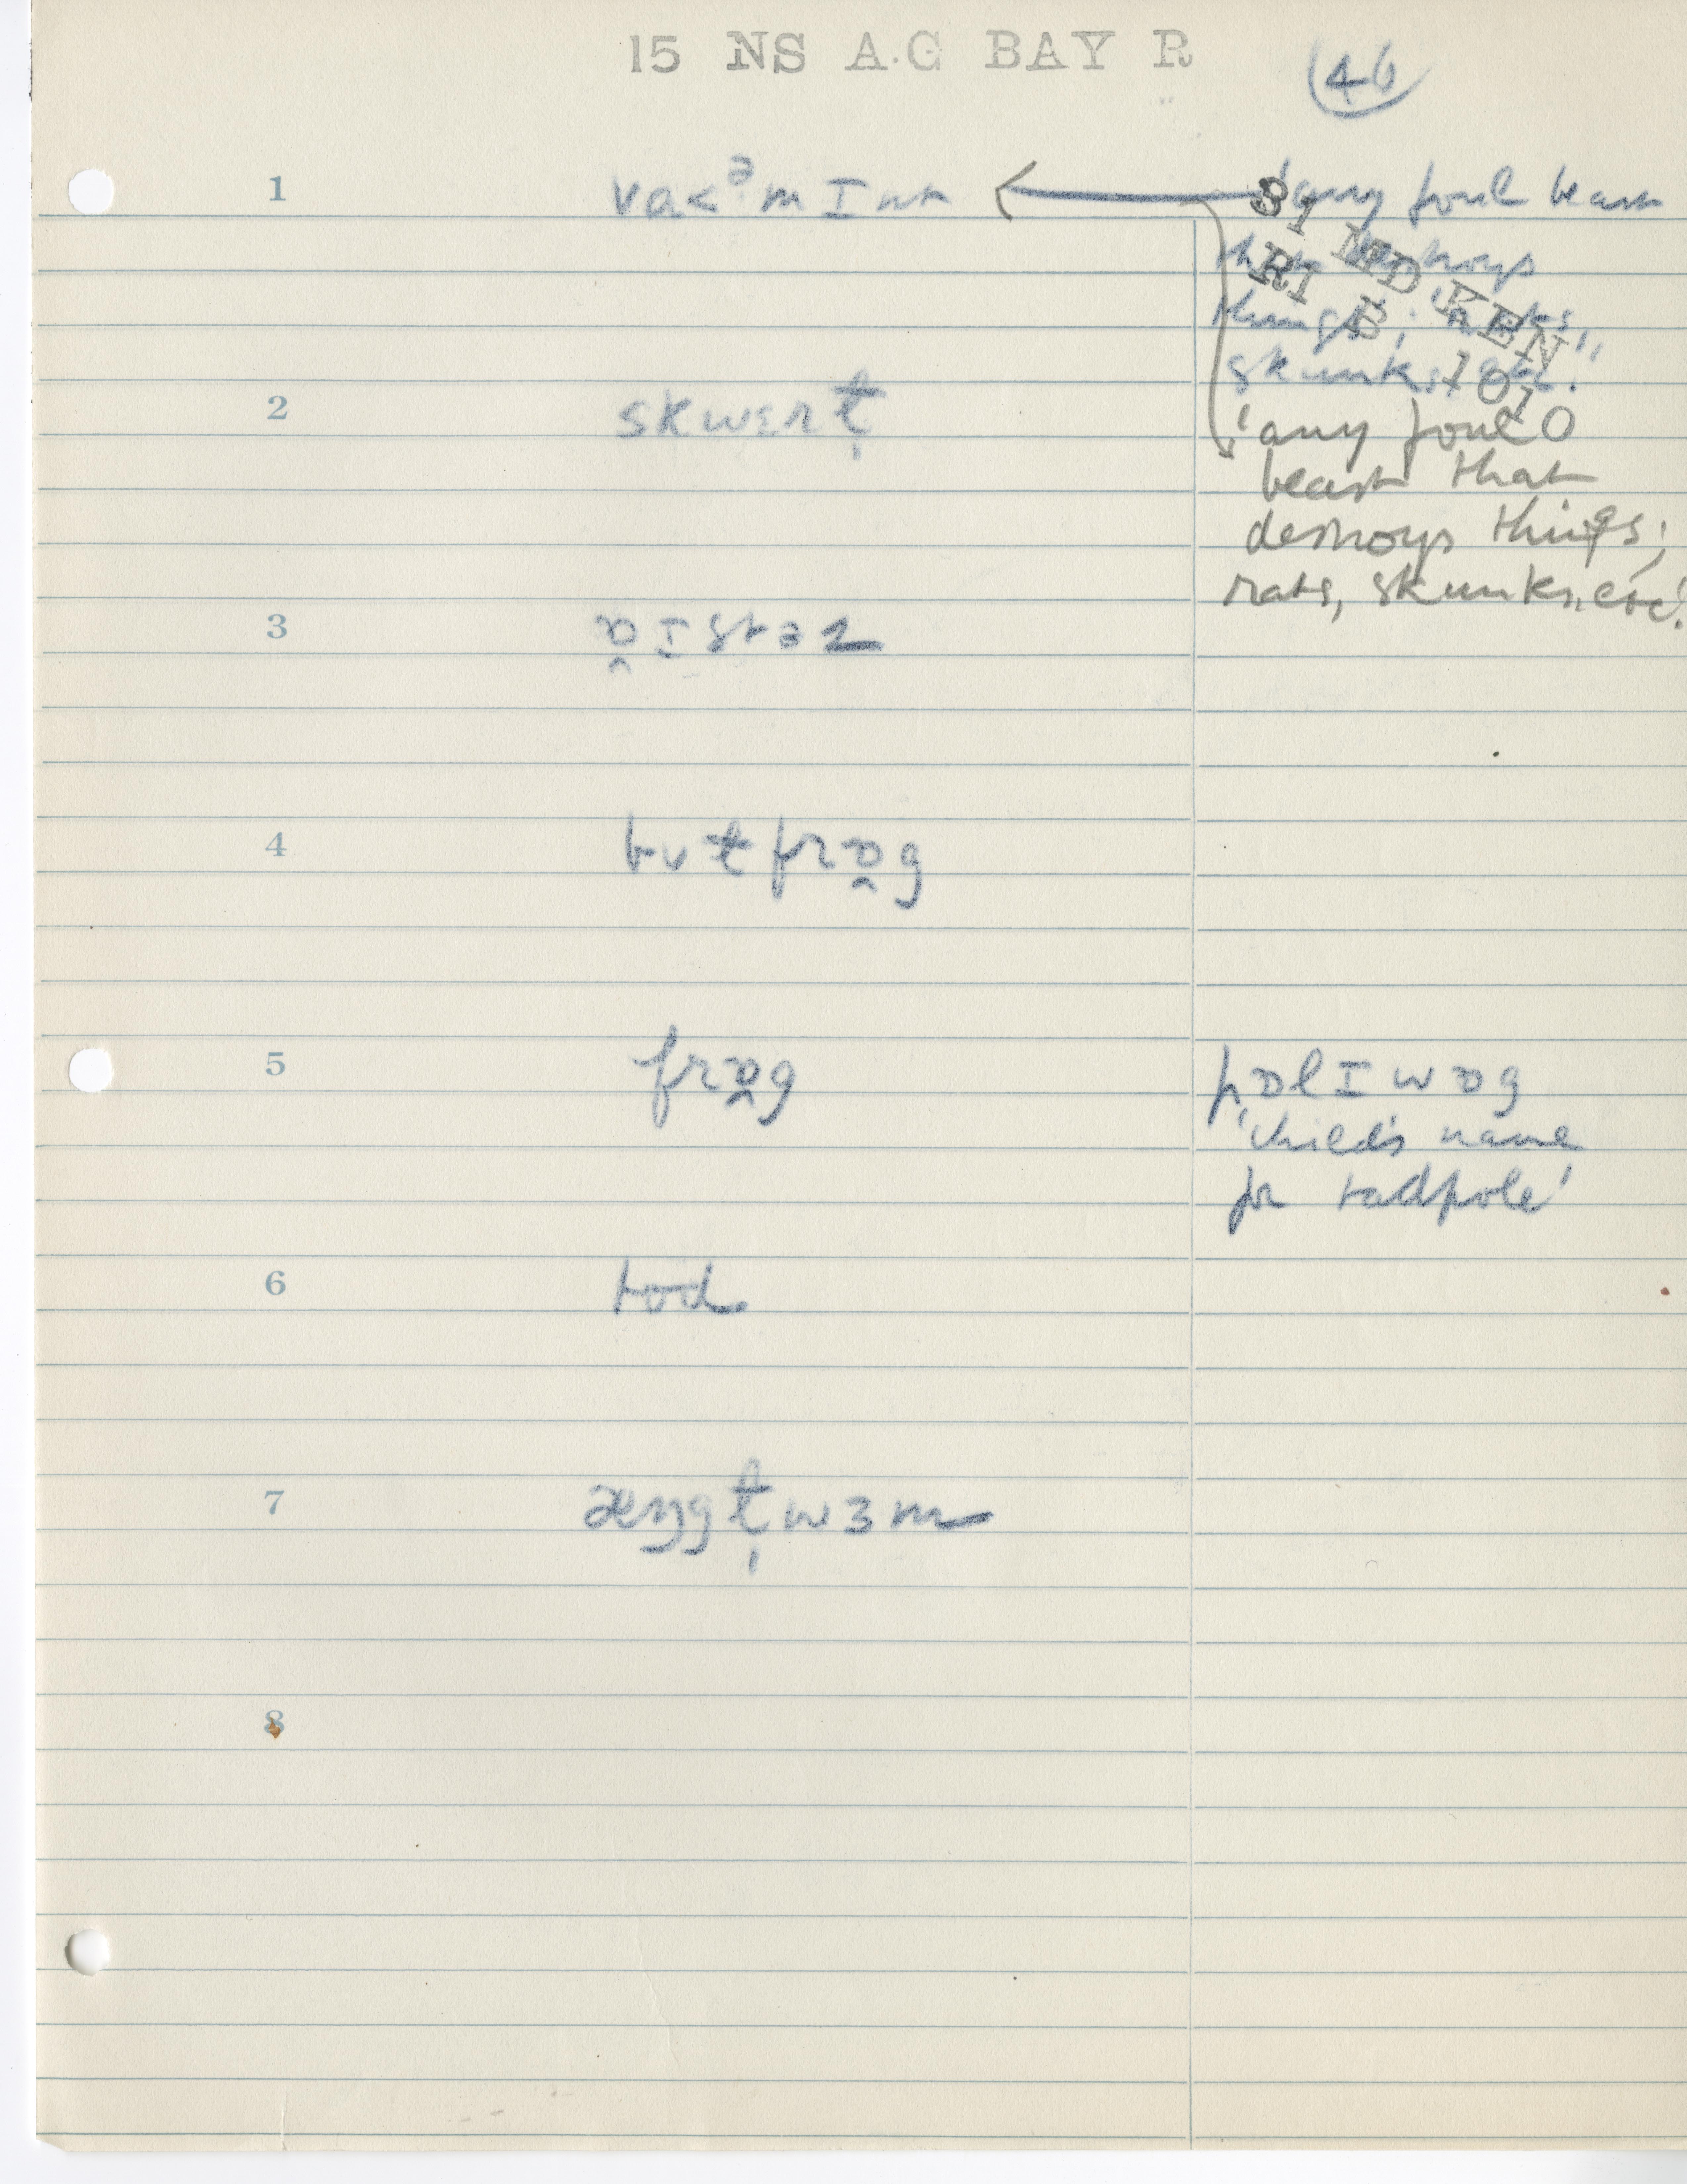 15 NS A·C BAY R
46
1 va<ᵊmInt 'any foul beast
that destroys
things; rats,
skunks, etc.'
SI MD KEN
RI B
1010
2 skwɛrɫ̩
'any foul
beast that
destroys things;
rats, skunks, etc.'
3 ɒ̭Istəz
4 bʊɫfrɒ̭g
5 frɒ̭g pɒlIwɒg
'child's name
for tadpole'
6 tod
7 æŋgɫ̩wɜm
8